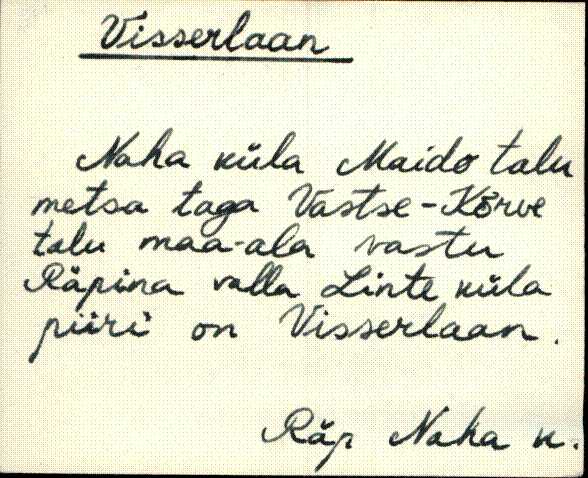 Visserlaan
Naha küla Maido talu
metsa taga Vastse-Kõrve
talu maa-ala vastu
Räpina valla Linte küla
piiri on Visserlaan.
Räp Naha k.